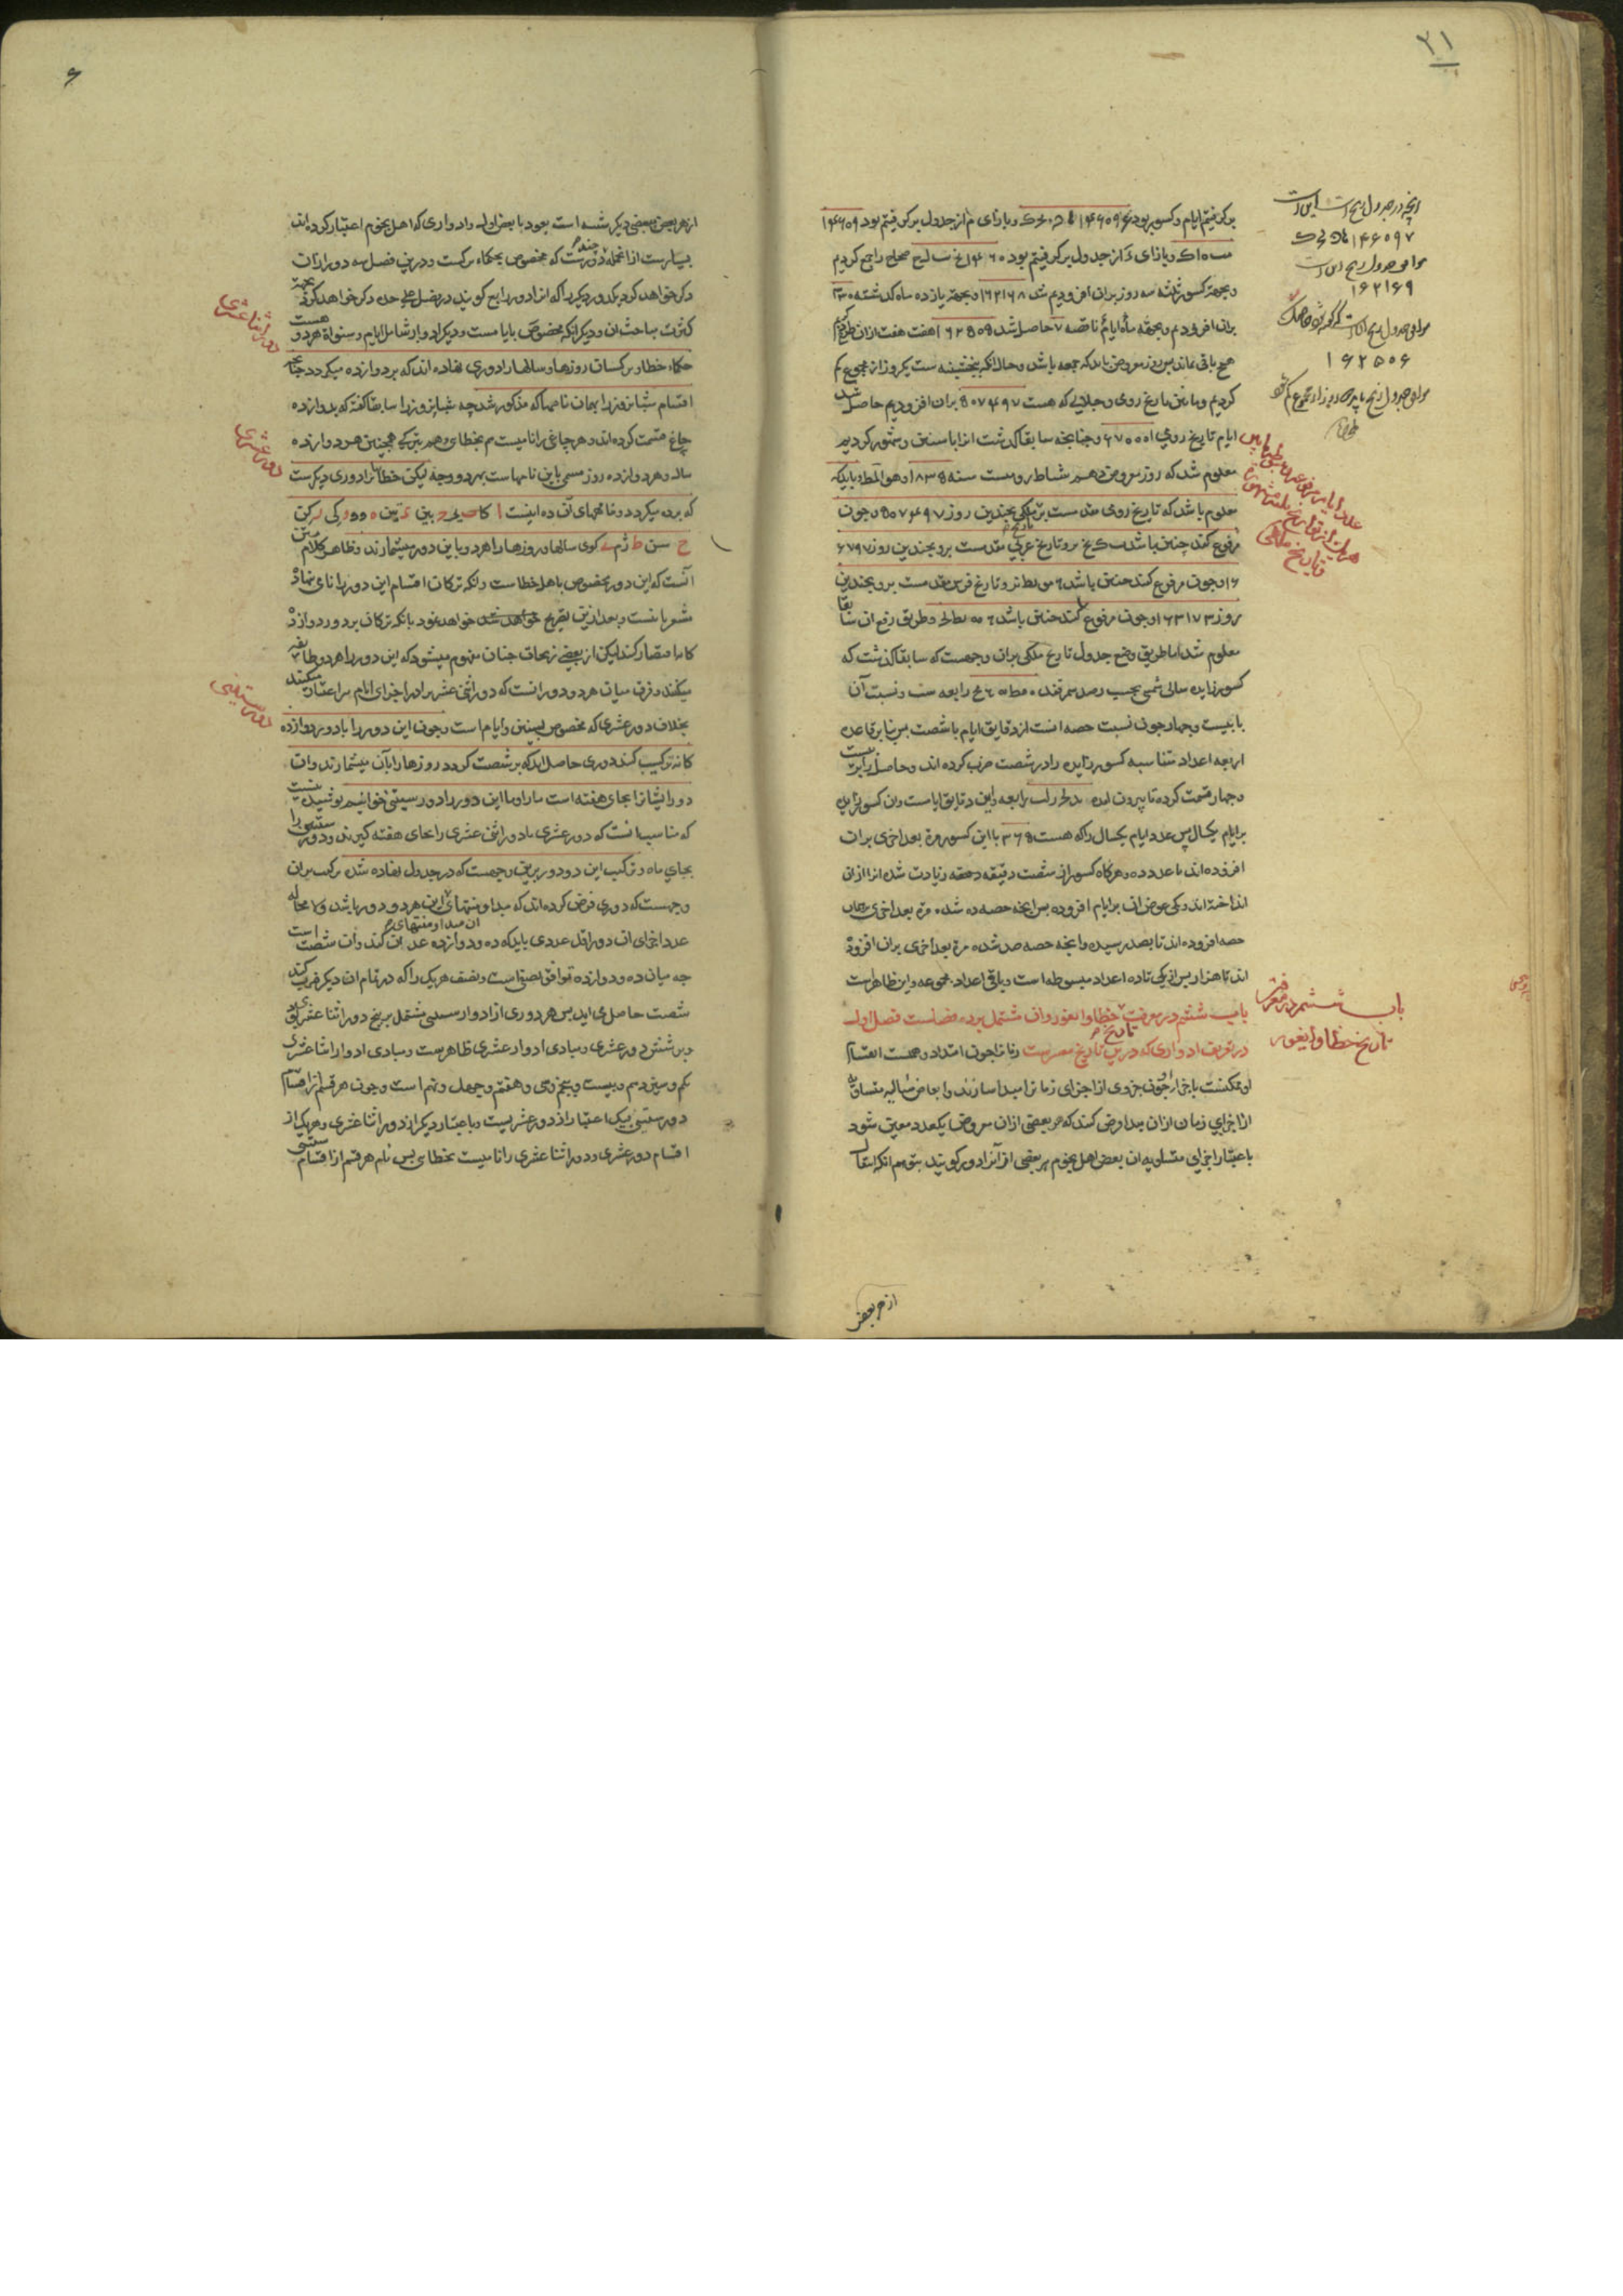 برگرفتیم ایام و کسور بود
و بازای م از جدول برگرفتیم بود ۱۴۶۰۹
و بازای از جدول برگرفتیم بود صحاح راجمع کردیم
و بجهة کسور ثلثه سه روز بران افزودیم شد ۱۶۲۱۶۸ و بجهة یازده ماه گذشته ۳۳۰
بران افزودیم و بجهة ایام ناقصه ۷ حاصل شد ۱۶۲۵۰۵ هفت هفت ازان طرح کردیم
هیچ باقی نماند پس روز مفروض باید که جمعه باشد و حال آنکه پنجشنبه است یکروز از مجموع کم
کردیم و مابین تاریخ رومی و جلالی که هست ۵۰۷۴۹۷ بران افزودیم حاصل شد
ایام تاریخ رومی و چنانچه سابقا گذشت انرا با سنین و شهور کردیم
معلوم شد که روز مفروض دهم شباط رومیست سنه ۱۸۳۵ وهو المط و باید که
معلوم باشد که تاریخ رومی مقدمست بر ملکی بچندین روز ۵۰۷۴۹۷ و چون
مرفوع کنند چنین باشد و تاریخ عربی مقدمست برو بچندین روز
و چون مرفوع کنند چنین باشد و تاریخ فرس مقدمست برو بچندین
روز ۱۶۳۱۷۳ و چون مرفوع کنند چنین باشد و طریق رفع ان سابقا
معلوم شد اما طریق وضع جدول تاریخ ملکی بران وجهست که سابقا گذشت که
کسور زایده سالی شمسی بحسب رصد سمرقند رابعه است و نسبت آن
با بیست و چهار چون نسبت حصه انست از دقایق ایام با شصت پس بنا بر قاعده
اربعه اعداد متناسبه کسور زایده را در شصت ضرب کرده اند و حاصل را بر بیست
و چهار قسمت کرده تا بیرون آمده رابعه و این دقایق ایامست و ان کسور زایده
بر ایام یکسال پس عدد ایام یکسال را که هست ۳۶۵ با این کسور مرة بعد اخری بران
افزوده اند تا عدد ده و هرگاه کسور از شصت دقیقه زیادت شده انرا ازان
انداخته اند و یکی عوض ان بر ایام افزوده پس آنچه حصه ده شده مرة بعد اخری
حصه افزوده اند تا بصد رسیده و آنچه حصه صد شده مرة بعد اخری بران افزوده
اند تا هزار پس از یکی تا ده اعداد مبسوطه است و باقی اعداد مجموعه و این ظاهرست
باب ششم در معرفت تاریخ خطا و ایغور و ان مشتمل بر ده فصلست فصل اول
در تعریف ادواری که درین تاریخ معتبرست زمانرا چون امتداد و هست انقسام
او ممکنست باجزا و چون جزوی از اجزای زمانرا مبدا سازند و ابعاض متتالیه متساویه
از اجزای زمان ازان مبدا فرض کنند که هر بعضی ازان معروض یکعدد معین شود
باعتبار اجزای متساویه ان بعض اهل نجوم هر بعضی از آنرا دور گویند بتوهم آنکه انتقال
از هر بعض
۲۱
آنچه در جدول زیج است این است
۱۴۶۰۹۷
موافق جدول زیج این است
۱۶۲۱۶۹
۱۶۲۵۰۶
عدد ایام مرفوعه و مبسوطه مابین
هریک از تواریخ ثلثه مشهوره
و تاریخ ملکی
باب ششم در معرفة
تاریخ خطا و ایغور
از هر بعض ببعضی دیگر شده است بعود با بعض اول و ادواری که اهل نجوم اعتبار کرده اند
بسیارست از انجمله چند دورست که مخصوص بحکماء ترکست و درین فصل سه دور ازان
ذکر خواهد کرد و یکدور دیگر را که انرا دور رابع گویند در فصل علی حده ذکر خواهد کرد بجهة
کثرت مباحث ان و دیگر آنکه مخصوص بایامست و دیگر ادوار شامل ایام و سنواة هر دو هست
حکماء خطا و ترکستان روزها و سالها را دوری نهاده اند که بر دوازده میگردد چنانچه
اقسام شبانروز را بهمان نامها که مذکور شد چه شبانروز را سابقا گفته که بدوازده
چاغ قسمت کرده اند و هر چاغی را نامیست هم بخطای و هم بترکی همچنین هر دوازده
ساله و هر دوازده روز مسمی باین نامهاست بهر دو وجه لیکن خطائیانرا دوری دیگرست
که بر ده میگردد و نامهای آن ده اینست
گوی سالها و روزها را هر دو باین دور میشمارند و ظاهر کلام متن
آنست که این دور مخصوص باهل خطاست و آنکه ترکان اقسام این دور را نامی نهاده
شعر بانست و بعد ازین تصریح خواهد نمود بآنکه ترکان بر دور دوازده
کانه اقتصار کنند لیکن از بعضی زیجات چنان مفهوم میشود که این دور را هر دو طایفه
میکنند و فرق میان هر دو دور انست که دور اثنی عشر را در اجزای ایام هم اعتبار میکنند
بخلاف دور عشری که مخصوص بسنین و ایام است و چون این دور را با دور دوازده
کانه ترکیب کنند دوری حاصل آید که بر شصت گردد روزها را بآن میشمارند و ان
دور ایشانرا بجای هفته است ما را و ما این دور را دور ستینی خوانیم پوشیده نیست
که مناسب انست که دور عشری یا دور اثنی عشری را بجای هفته گیرند و دور ستینی را
بجای ماه و ترکیب این دو دور برین وجهست که در جدول نهاده شده ترکیب بران
وجهست که دوری فرض کرده اند که مبدا و منتهای ان مبدا و منتهای این هر دو دور باشد و لا محاله
عدد اجزای ان دور اقل عددی باید که ده و دوازده عد ان کنند و ان شصت است
چه میان ده و دوازده توافق بنصف است و نصف هر یک را که در تمام ان دیگر ضرب کنند
شصت حاصل می آید پس هر دوری از ادوار ستینی مشتمل بر پنج دور اثنا عشری بود
و بر شش دور عشری و مبادی ادوار عشری ظاهرست و مبادی ادوار اثنا عشری
یکم و سیزدهم و بیست و پنجم و سی و هفتم و چهل و نهم است و چون هر قسم از اقسام
دور ستینی بیک اعتبار از دور عشریست و باعتبار دیگر از دور اثنا عشری و هر یک از
اقسام دور عشری و دور اثنا عشری را نامیست بخطای پس نام هر قسم از اقسام ستینی
دور اثنا عشری
دور عشری
دور ستینی